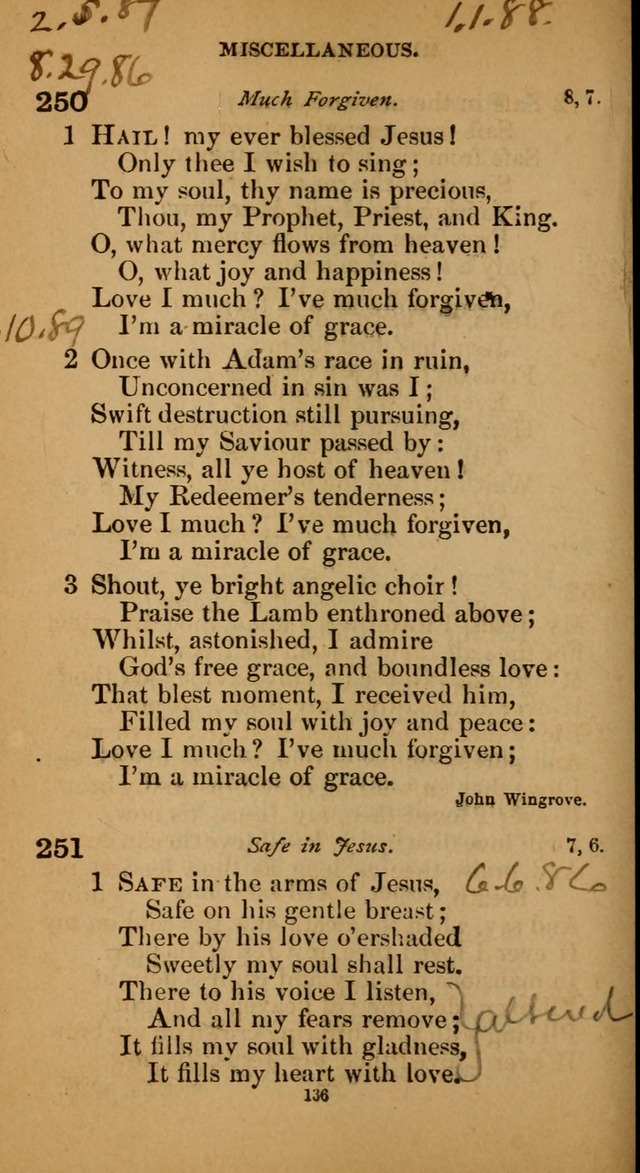 2.5.87 1.1.88.
MISCELLANEOUS.
8.29.86
250 Much Forgiven. 8, 7.
1 HAIL! my ever blessed Jesus!
Only thee I wish to sing;
To my soul, thy name is precious,
Thou, my Prophet, Priest, and King.
O, what mercy flows from heaven!
O, what joy and happiness!
Love I much? I've much forgiven,
10.89 I'm a miracle of grace.
2 Once with Adam's race in ruin,
Unconcerned in sin was I;
Swift destruction still pursuing,
Till my Saviour passed by:
Witness, all ye host of heaven!
My Redeemer's tenderness;
Love I much? I've much forgiven,
I'm a miracle of grace.
3 Shout, ye bright angelic choir!
Praise the Lamb enthroned above;
Whilst, astonished, I admire
God's free grace, and boundless love:
That blest moment, I received him,
Filled my soul with joy and peace:
Love I much? I've much forgiven;
I'm a miracle of grace.
John Wingrove.
251 Safe in Jesus. 7, 6.
1 SAFE in the arms of Jesus, 6.6.86
Safe on his gentle breast;
There by his love o'ershaded
Sweetly my soul shall rest.
There to his voice I listen,
And all my fears remove; altered
It fills my soul with gladness,
It fills my heart with love.
136